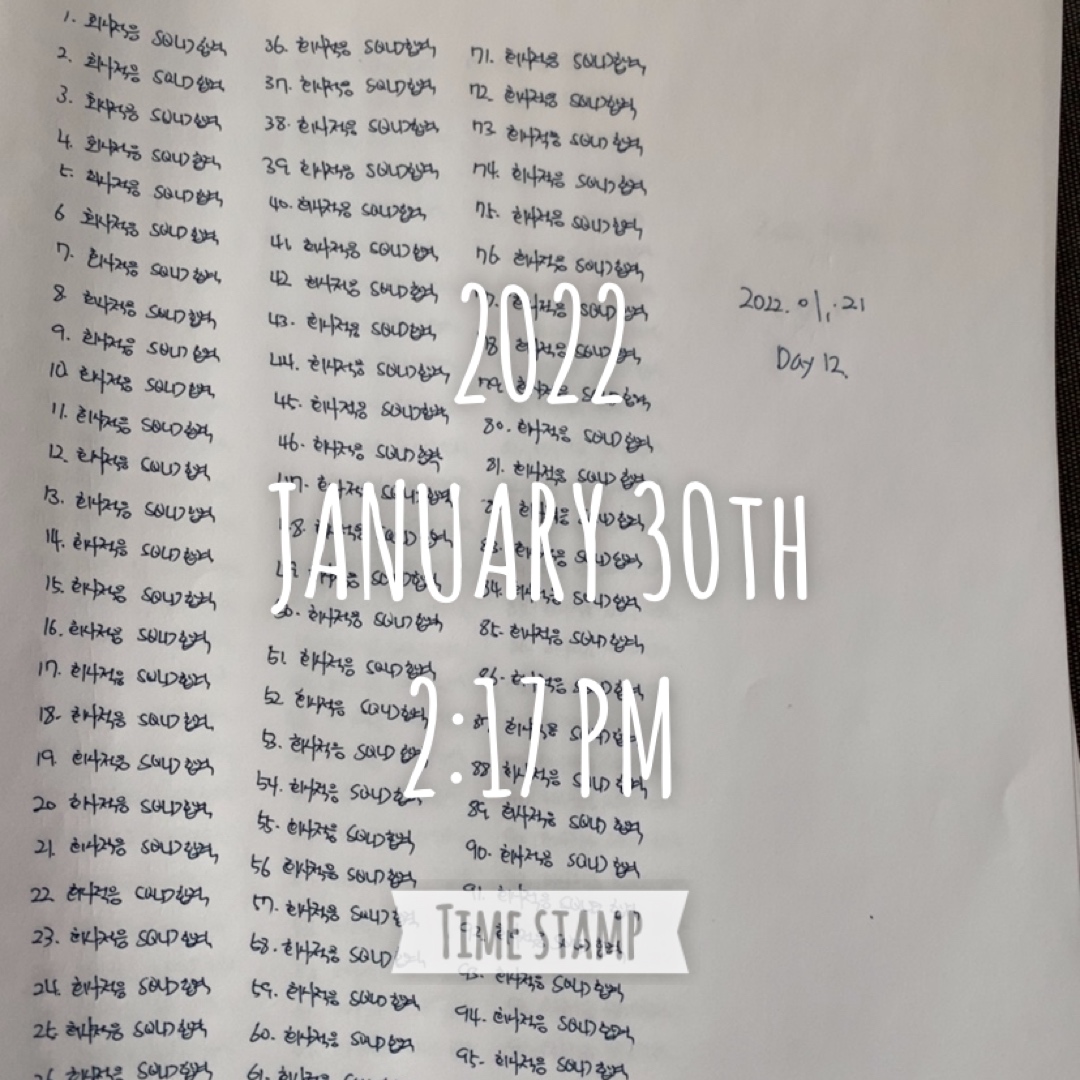 1. 회사적응 SQLD합격
2. 회사적응 SQLD합격
3. 회사적응 SQLD합격
4. 회사적응 SQLD합격
5. 회사적응 SQLD합격
6 회사적응 SQLD합격
7. 회사적응 SQLD합격
8. 회사적응 SQLD합격
9. 회사적응 SQLD합격
10. 회사적응 SQLD합격
11. 회사적응 SQLD합격
12. 회사적응 SQLD합격
13. 회사적응 SQLD합격
14. 회사적응 SQLD합격
15. 회사적응 SQLD합격
16. 회사적응 SQLD합격
17. 회사적응 SQLD합격
18. 회사적응 SQLD합격
19. 회사적응 SQLD합격
20 회사적응 SQLD합격
21. 회사적응 SQLD합격
22 회사적응 SQLD합격
23. 회사적응 SQLD합격
24. 회사적응 SQLD합격
25 회사적응 SQLD합격
26 회사적응 SQLD합격
36. 회사적응 SQLD합격
37. 회사적응 SQLD합격
38. 회사적응 SQLD합격
39 회사적응 SQLD합격
40. 회사적응 SQLD합격
41 회사적응 SQLD합격
42 회사적응 SQLD합격
43. 회사적응 SQLD합격
44. 회사적응 SQLD합격
45. 회사적응 SQLD합격
46. 회사적응 SQLD합격
회사적응 SQLD합격
51 회사적응 SQLD합격
52 회사적응 SQLD합격
53. 회사적응 SQLD
54. 회사적응 SQLD합격
55. 회사적응 SQLD합격
56 회사적응 SQLD합격
57. 회사적응 SQLD
58. 회사적응 SQLD
59. 회사적응 SQLD합격
60. 회사적응 SQLD합격
61. 회사적응
71. 회사적응 SQLD합격
72. 회사적응 SQLD합격
73 회사적응 SQLD합격
74. 회사적응 SQLD합격
75. 회사적응 SQLD합격
76 회사적응 SQLD합격
80. 회사적응 SQLD합격
81. 회사적응 SQLD합격
85. 회사적응 SQLD합격
88 회사적응 SQLD합격
89. 회사적응 SQLD합격
90. 회사적응 SQLD합격
93. 회사적응 SQLD합격
94. 회사적응 SQLD합격
95. 회사적응 SQLD합격
2022. 01. 21
Day 12.
2022
JANUARY 30TH
2:17 PM
TIME STAMP